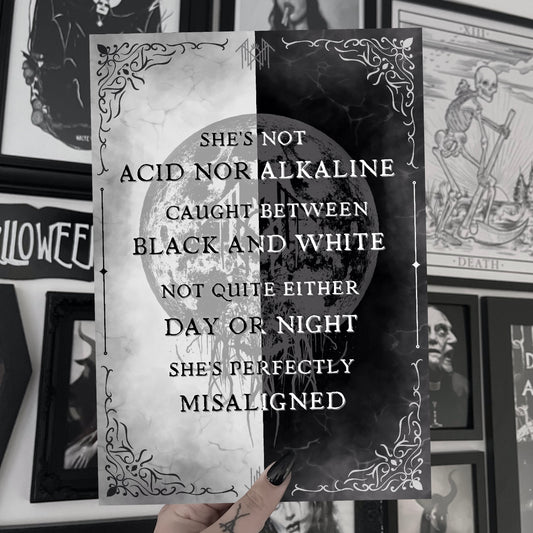 XIII
SHE'S NOT
ACID NOR ALKALINE
CAUGHT BETWEEN
BLACK AND WHITE
NOT QUITE EITHER
DAY OR NIGHT
SHE'S PERFECTLY
MISALIGNED
DEATH.